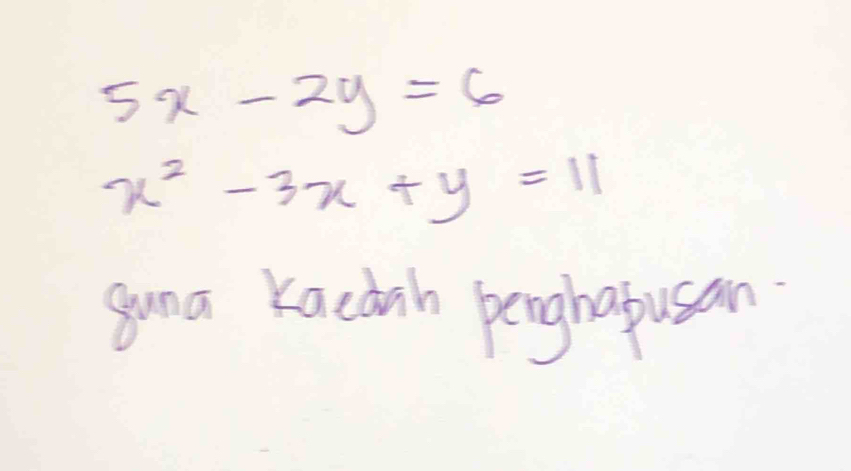 5x - 2y = 6
x² - 3x + y = 11
guna kaedah penghapusan.